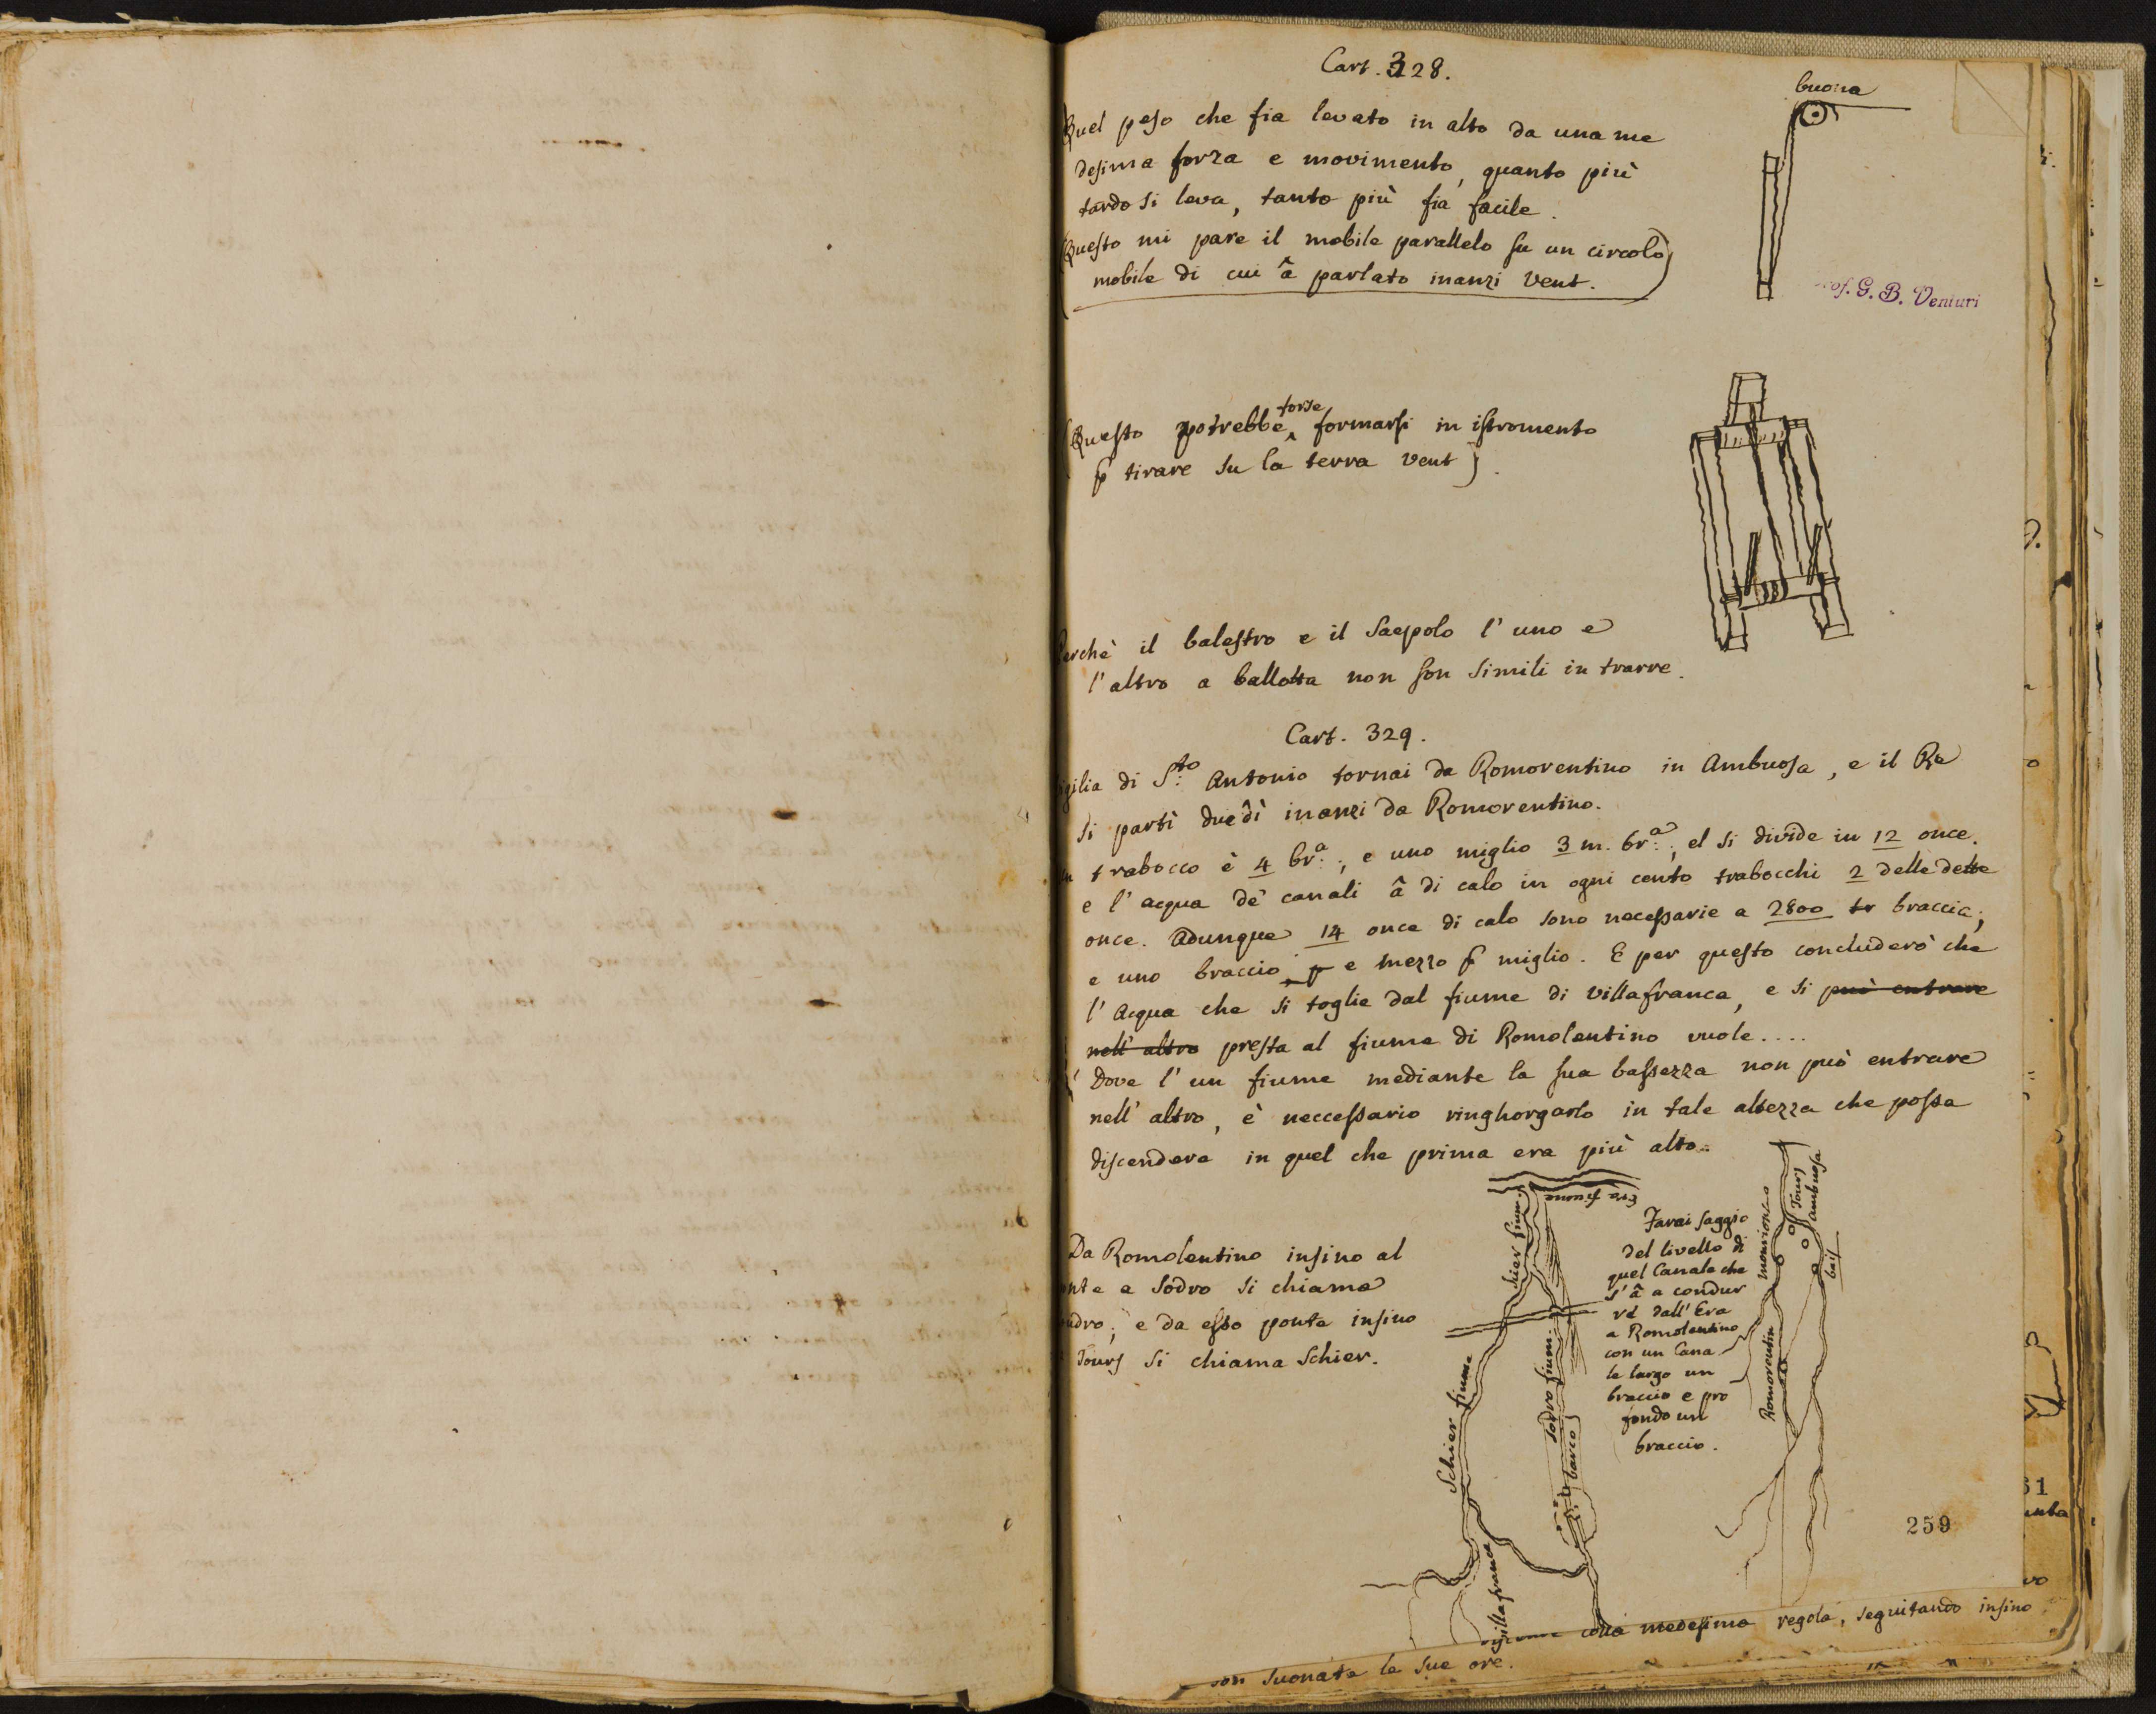 Cart. 328.
buona
Quel peso che fia levato in alto da una me
desima forza e movimento, quanto più
tardo si leva, tanto più fia facile.
(Questo mi pare il mobile parallelo su un circolo
mobile di cui â parlato inanzi Vent.)
Prof. G. B. Venturi
(Questo potrebbe forse formarsi in istromento
p tirare su la terra Vent).
Perchè il balestro e il Saepolo l'uno e
l'altro a ballotta non son simili in trarre.
Cart. 329.
Vigilia di S.to Antonio tornai da Romorentino in Ambuosa, e il Re
si partì due dì inanzi da Romorentino.
Un trabocco è 4 br.a; e uno miglio 3 m. br.a; el si divide in 12 once.
e l'acqua de' canali â di calo in ogni cento trabocchi 2 delle dette
once. Adunque 14 once di calo sono necessarie a 2800 tr braccia;
e uno braccio p e mezzo p miglio. E per questo concluderò che
l'Acqua che si toglie dal fiume di Villafranca, e si può entrare
nell'altro presta al fiume di Romolentino vuole....
Dove l'un fiume mediante la sua bassezza non può entrare
nell'altro, è neccessario ringhorgarlo in tale altezza che possa
discendere in quel che prima era più alto.
Era fiume
Schier fium.
Da Romolentino insino al
ponte a Sodro si chiama
Sodro; e da esso ponte insino
a Tours si chiama Schier.
Farai saggio
del livello di
quel Canale che
s'â a condur
re dall'Era
a Romolentino
con un Cana
le largo un
braccio e pro
fondo un
braccio.
monrion
Tours
Ambuosa
Romorentin
Schier fiume
Sodro fiume
barco
villafranca
259
colla medesima regola, seguitando insino
son suonate le sue ore.